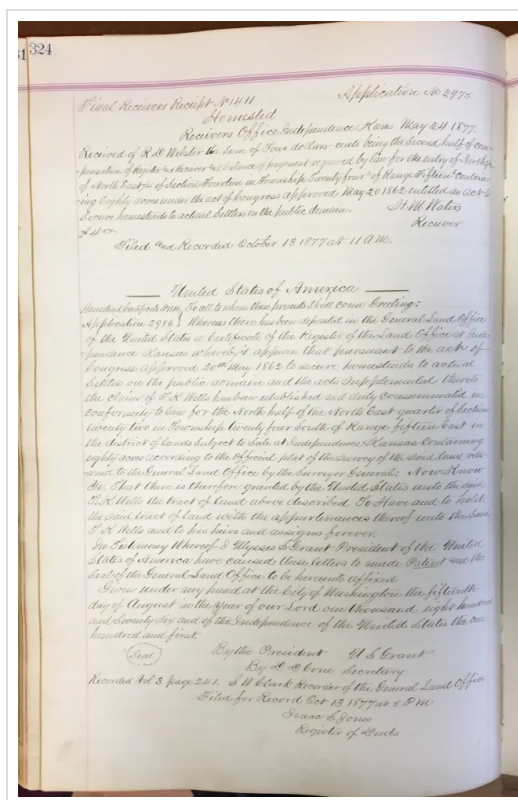 324
Final Receivers Receipt No 1411 Application No 2975
Homestead
Receivers Office Independence Kans May 24 1877.
Received of R D Webster the sum of Four dollars cents being the Second half of com-
pensation of Register and Receiver and balance of payment required by law for the entry of North
of North East of Section Fourteen in Township Twenty four of Range Fifteen contain-
ing Eighty acres under the act of Congress approved May 20 1862 entitled an Act to
Secure homesteads to actual Settlers on the public domain.
M Waters
$4 Receiver
Filed and Recorded October 13 1877 at 11 A.M.
United States of America
Homestead Certificate To all to whom these presents Shall come Greeting:
Application 2986 Whereas there has been deposited in the General Land Office
of the United States a Certificate of the Register of the Land Office at Inde-
pendence Kansas whereby it appears that pursuant to the act of
Congress approved 20th May 1862 to secure homesteads to actual
Settlers on the public domain and the acts Supplemental thereto
the claim of F K Wells has been established and duly consummated in
conformity to law for the North half of the North East quarter of Section
twenty two in Township twenty four South of Range fifteen East in
the district of lands Subject to Sale at Independence Kansas Containing
eighty acres according to the Official plat of the Survey of the Said land retur-
ned to the General Land Office by the Surveyor General: Now Know
Ye That there is therefore granted by the United States unto the said
F K Wells the tract of land above described To Have and to hold
the said tract of land with the appurtenances thereof unto the Said
F K Wells and to his heirs and assigns forever.
In Testimony Whereof I Ulysses S Grant President of the United
States of America have caused these letters to made Patent and the
Seal of the General Land Office to be hereunto affixed
Given under my hand at the City of Washington the fifteenth
day of August in the Year of our Lord one thousand eight hundred
and Seventy Six and of the Independence of the United States the one
hundred and first.
Seal By the President U S Grant
By D D Cone Secretary
Recorded Vol 3 page 241. S W Clark Recorder of the General Land Office
Filed for Record Oct 13 1877 at 5 P M
Isaac S Jones
Register of Deeds